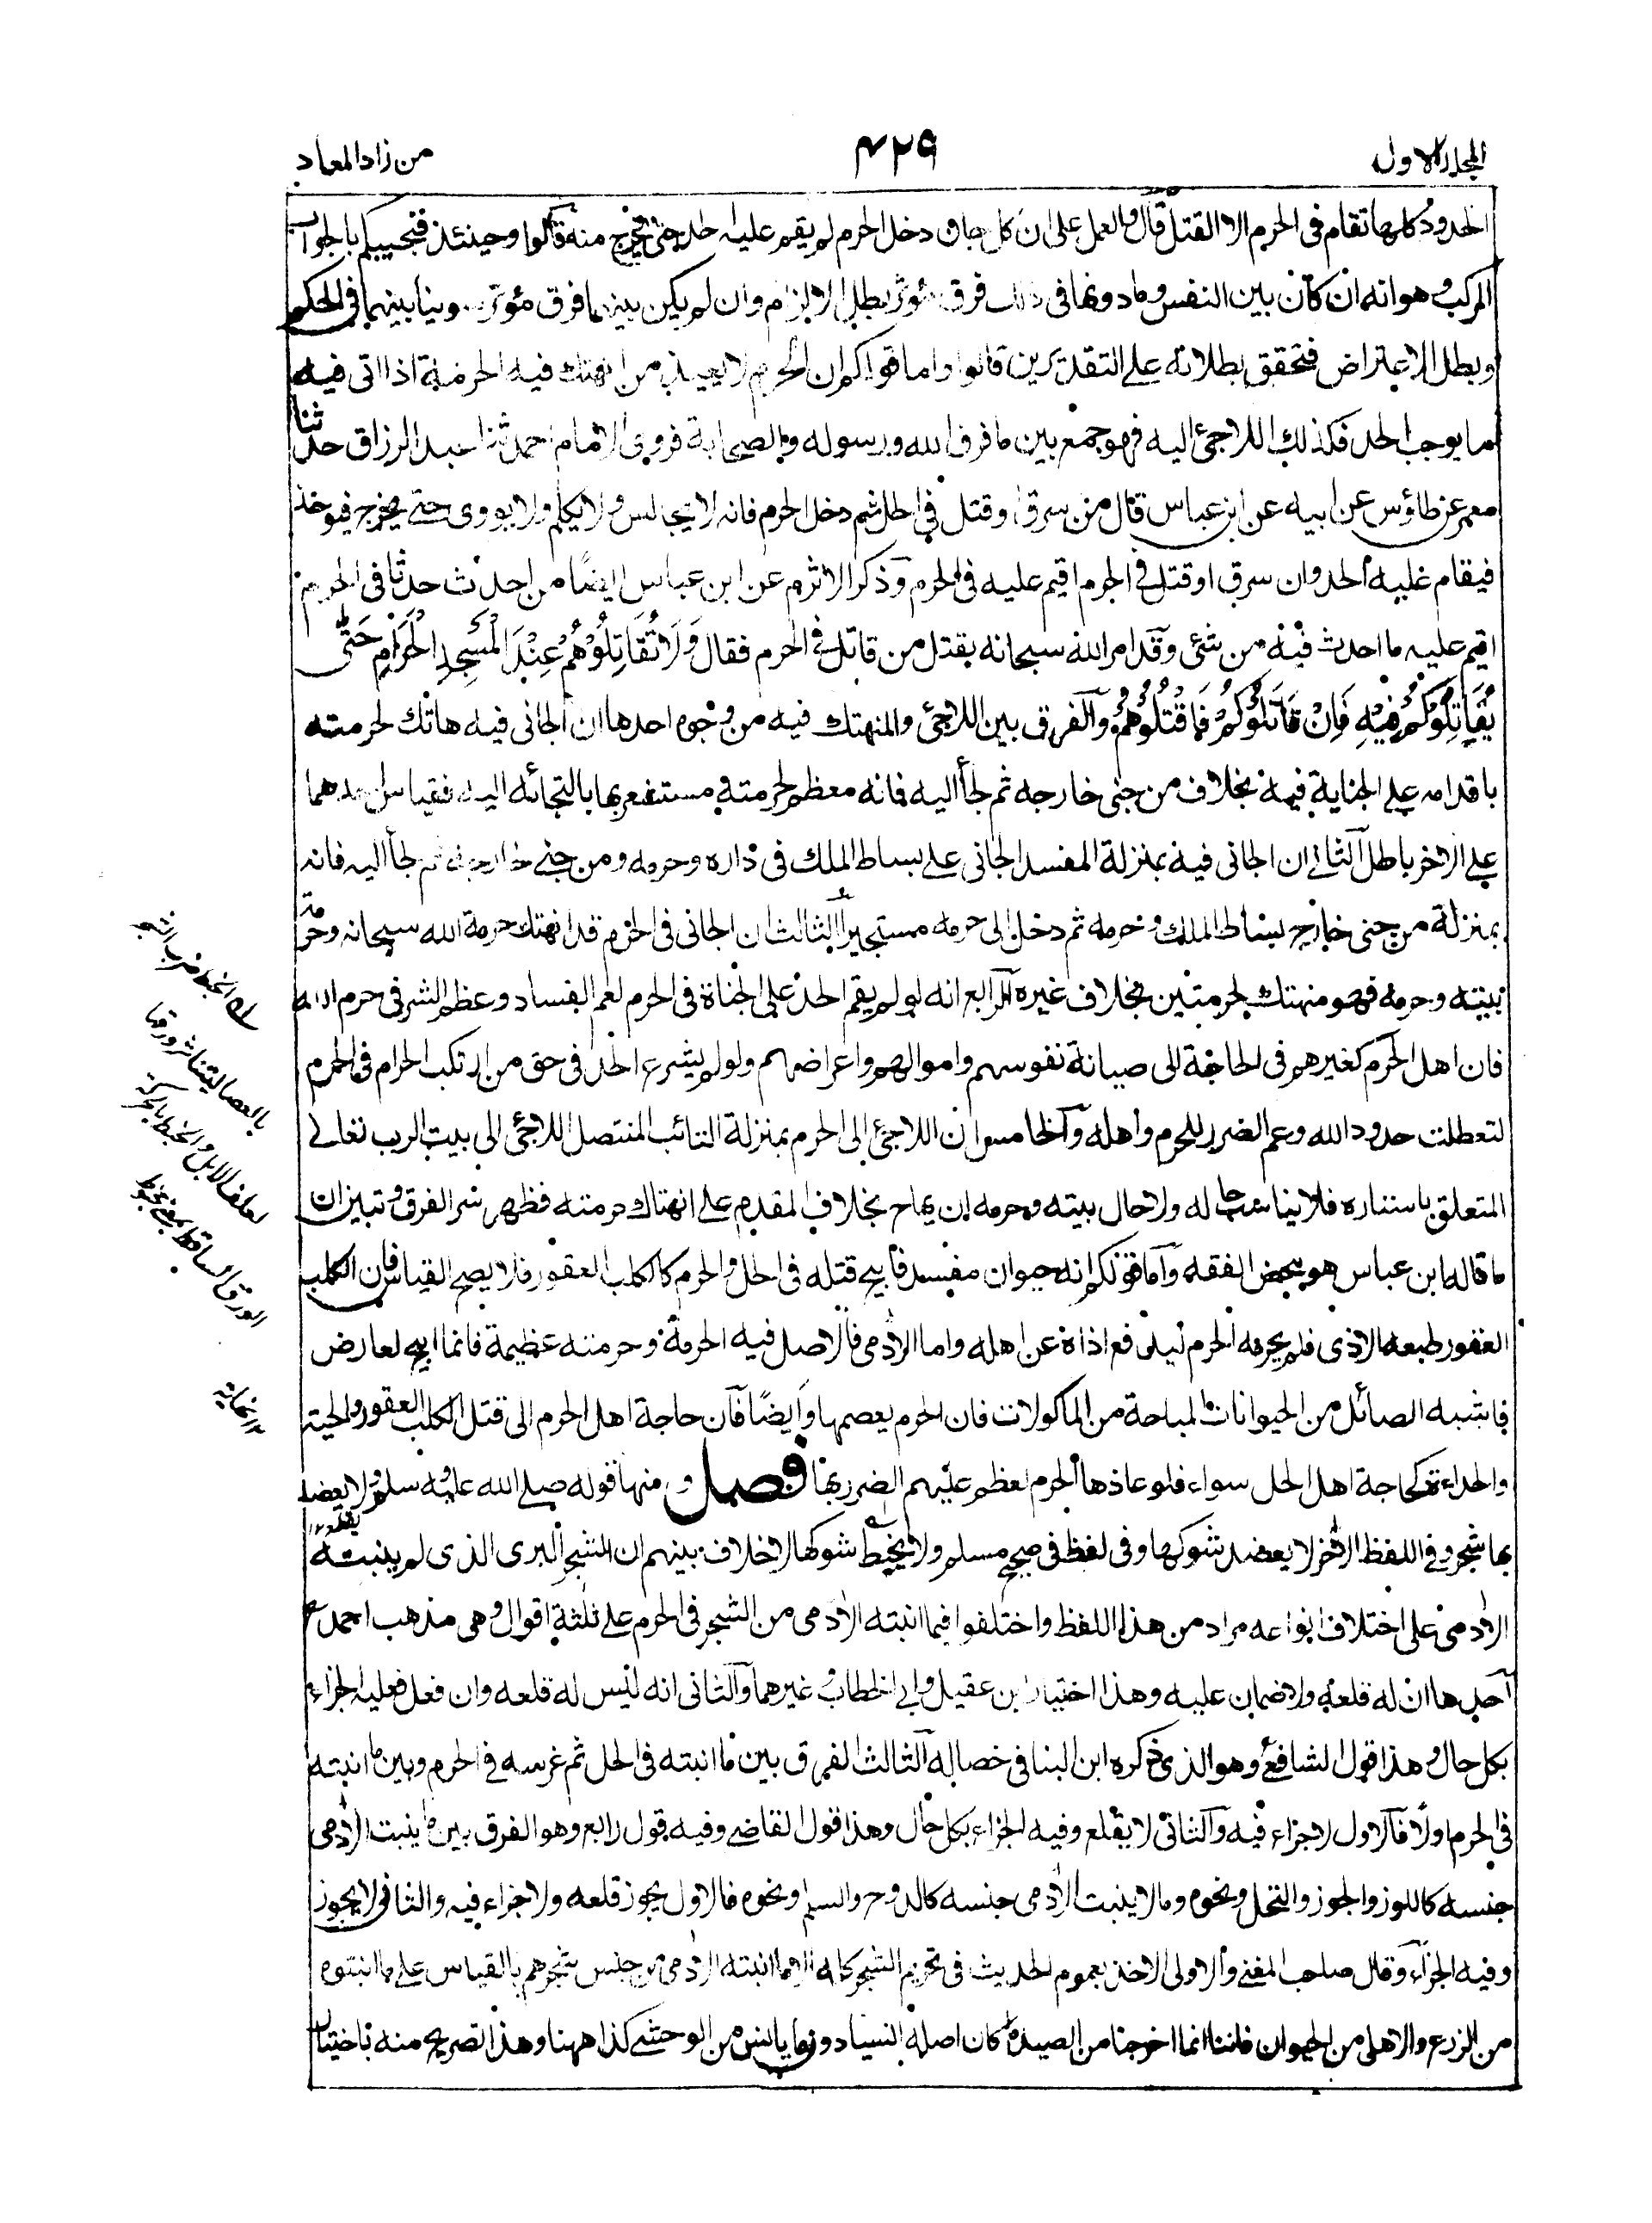 المجلد الاول
۴۲۹
من زاد المعاد
الحدود كلها تقام فى الحرم الا القتل قال والعمل على ان كل جان دخل الحرم لم يقم عليه حد حتى يخرج منه قالوا وحينئذ فنجيبكم بالجواب
المركب وهو انه ان كان بين النفس وما دونها فى ذلك فرق مؤثر بطل الالزام وان لم يكن بينهما فرق مؤثر سوينا بينهما فى الحكم
وبطل الاعتراض فتحقق بطلانه على التقديرين قالوا واما قولكم ان الحرم لا يعيذ من انتهك فيه الحرمة اذا اتى فيه
ما يوجب الحد فكذلك اللاجئ اليه فهو جمع بين ما فرق الله ورسوله والصحابة فروى الامام احمد ثنا عبد الرزاق حدثنا
معمر عن طاؤس عن ابيه عن ابن عباس قال من سرق او قتل فى الحل ثم دخل الحرم فانه لا يجالس ولا يكلم ولا يووى حتى يخرج فيوخذ
فيقام عليه الحد وان سرق او قتل فى الحرم اقيم عليه فى الحرم وذكر الاثرم عن ابن عباس ايضًا من احدث حدثا فى الحرم
اقيم عليه ما احدث فيه من شئ وقد امر الله سبحانه بقتل من قاتل فى الحرم فقال وَلَا تُقَاتِلُوْهُمْ عِنْدَ الْمَسْجِدِ الْحَرَامِ حَتّٰى
يُقَاتِلُوْكُمْ فِيْهِ فَاِنْ قَاتَلُوْكُمْ فَاقْتُلُوْهُمْ والفرق بين اللاجئ والمنهتك فيه من وجوه احدها ان الجانى فيه هاتك لحرمته
باقدامه على الجناية فيه بخلاف من جنى خارجه ثم لجأ اليه فانه معظم لحرمته ومستشعر بها بالتجائه اليه فقياس احدهما
على الاخر باطل الثانى ان الجانى فيه بمنزلة المفسد الجانى على بساط الملك فى داره وحرمه ومن جنى خارجه ثم لجأ اليه فانه
بمنزلة من جنى خارج بساط الملك وحرمه ثم دخل الى حرمه مستجيرا الثالث ان الجانى فى الحرم قد انتهك حرمة الله سبحانه وحرمة
بيته وحرمه فهو منهتك لحرمتين بخلاف غيره الرابع انه لو لم يقم الحد على الجناة فى الحرم لعم الفساد وعظم الشر فى حرم الله
فان اهل الحرم كغيرهم فى الحاجة الى صيانة نفوسهم واموالهم واعراضهم ولو لم يشرع الحد فى حق من ارتكب الحرام فى الحرم
لتعطلت حدود الله وعم الضرر للحرم واهله والخامس ان اللاجئ الى الحرم بمنزلة التائب المنتصل اللاجئ الى بيت الرب تعالى
المتعلق باستاره فلا يناسب حاله ولا حال بيته وحرمه ان يهاج بخلاف المقدم على انتهاك حرمته فظهر سر الفرق وتبين ان
ما قاله ابن عباس هو محض الفقه واما قولكم انه حيوان مفسد فابيح قتله فى الحل والحرم كالكلب العقور فلا يصح القياس فان الكلب
العقور طبعه الاذى فلم يحرمه الحرم ليدفع اذاه عن اهله واما الآدمى فالاصل فيه الحرمة وحرمته عظيمة فانما ابيح لعارض
فاشبه الصائل من الحيوانات المباحة من الماكولات فان الحرم يعصمها وايضًا فان حاجة اهل الحرم الى قتل الكلب العقور والحية
والحداءة كحاجة اهل الحل سواء فلو عاذها الحرم لعظم عليهم الضرر بها فصل ومنها قوله صلى الله عليه وسلم ولا يعضد
بها شجر وفى اللفظ الآخر لا يعضد شوكها وفى لفظ فى صحيح مسلم ولا يخبط شوكها لا خلاف بينهم ان الشجر البرى الذى لم ينبته
الآدمى على اختلاف انواعه مراد من هذا اللفظ واختلفوا فيما انبته الآدمى من الشجر فى الحرم على ثلثة اقوال وهى مذهب احمد
احدها ان له قلعه ولا ضمان عليه وهذا اختيار ابن عقيل وابى الخطاب وغيرهما والثانى انه ليس له قلعه وان فعل فعليه الجزاء
بكل حال وهذا قول الشافعى وهو الذى ذكره ابن البنا فى خصاله الثالث الفرق بين ما انبته فى الحل ثم غرسه فى الحرم وبين ما انبته
فى الحرم اولًا فالاول لا جزاء فيه والثانى لا يقلع وفيه الجزاء بكل حال وهذا قول القاضى وفيه قول رابع وهو الفرق بين ما ينبت الآدمى
جنسه كاللوز والجوز والنخل ونحوه وما لا ينبت الآدمى جنسه كالدوح والسلم ونحوه فالاول يجوز قلعه ولا جزاء فيه والثانى لا يجوز
وفيه الجزاء وقال صاحب المغنى والاولى الاخذ بعموم الحديث فى تحريم الشجر كله الا ما انبته الآدمى من جنس شجرهم بالقياس على ما انبتوه
من الزرع والاهلى من الحيوان فاننا انما اخرجنا من الصيد ما كان اصله انسيا دون ما يانس من الوحشى كذا ههنا وهذا تصريح منه باختيار
له الخبط ضرب الشجر
بالعصا ليتناثر ورقها
لعلف الابل والخبط بالحركة
الورق الساقط بمعنى مخبوط
۱۲ نهايه